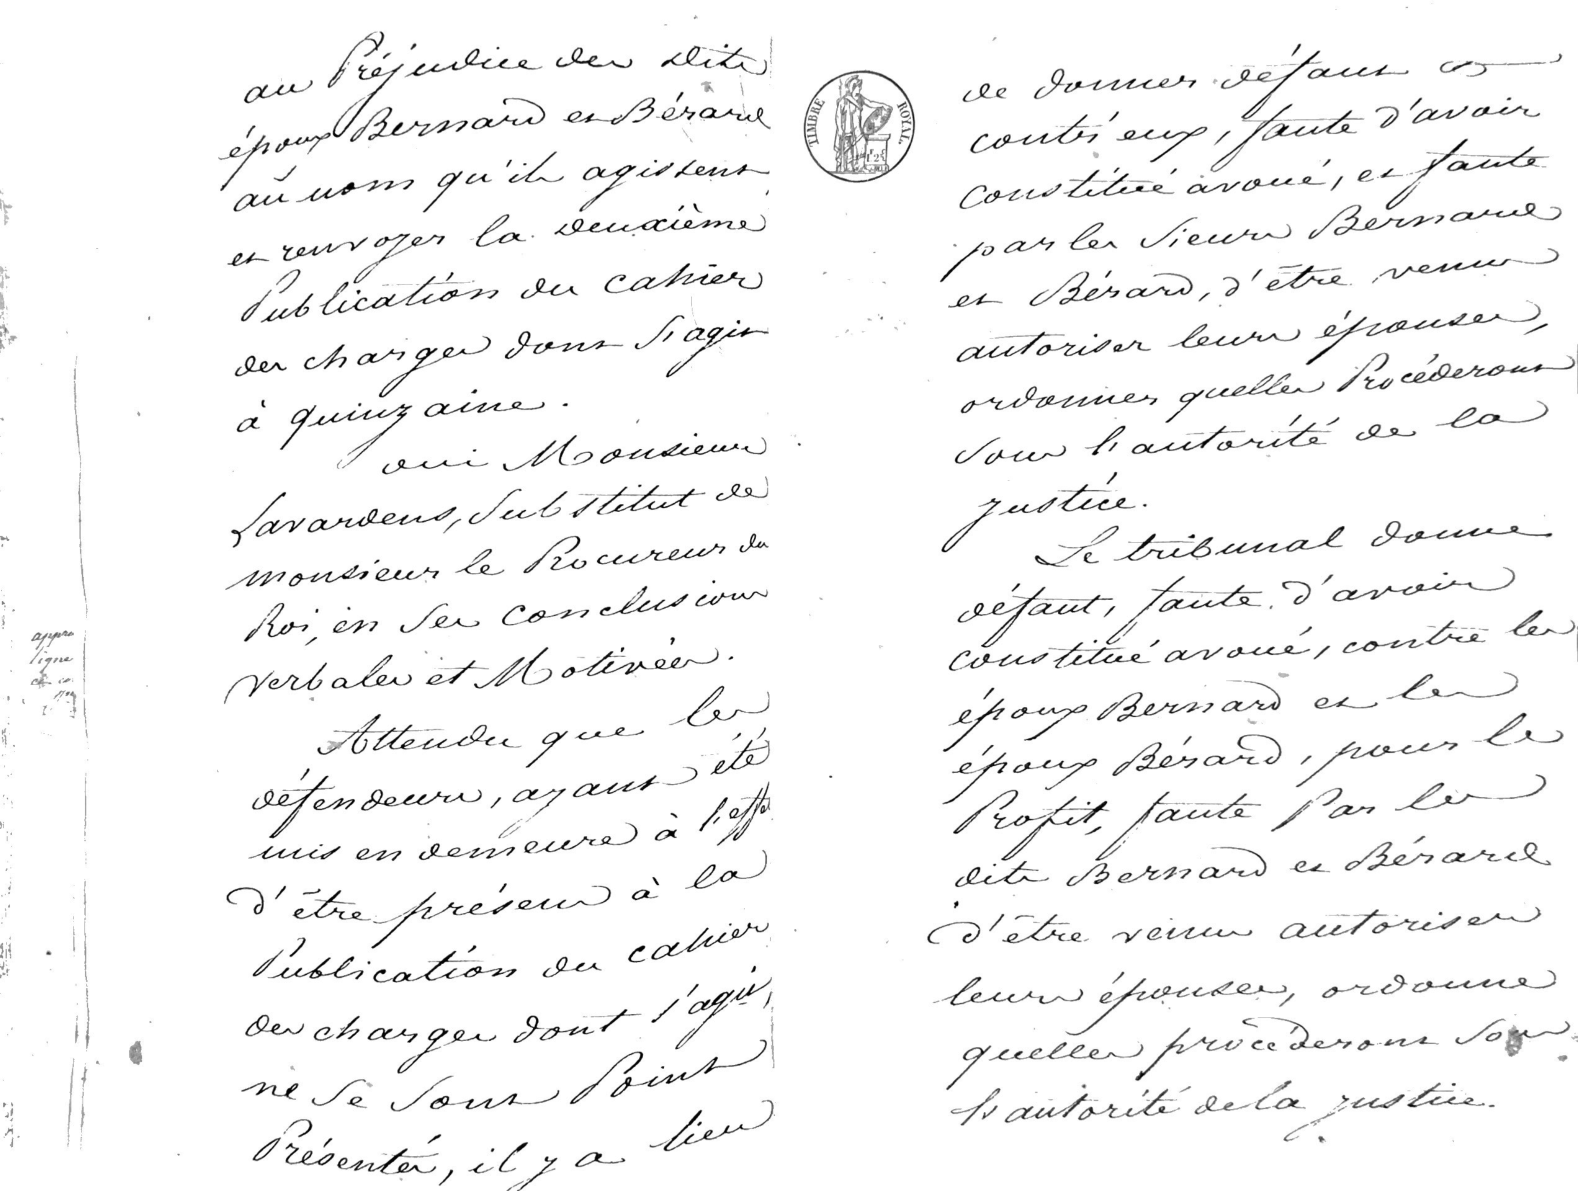 au Préjudice des dits
époux Bernard et Bérard
au nom qu'ils agissent
et renvoyer la deuxième
Publication du cahier
des charges dont s'agit
à quinzaine.
oui Monsieur
Lavardens, Substitut de
monsieur le Procureur du
Roi, en Ses Conclusions
verbales et Motivées.
Attendu que les
défendeurs, ayant été
mis en demeure à l'effet
d'être présens à la
Publication du cahier
des charges dont s'agit,
ne Se Sont Point
Présentés, il y a lieu
appro
ligne
TIMBRE ROYAL
de donner défaut
contr'eux, faute d'avoir
Constitué avoué, et faute
par les Sieurs Bernard
et Bérard, d'être venus
autoriser leurs épouses,
ordonner quelles Procéderont
Sous l'autorité de la
justice.
Le tribunal donne
défaut, faute d'avoir
constitué avoué, contre les
époux Bernard et les
époux Bérard, pour le
Profit, faute Par les
dits Bernard et Bérard
d'être venus autoriser
leurs épouses, ordonne
quelles procéderont Sous
l'autorité de la justice.